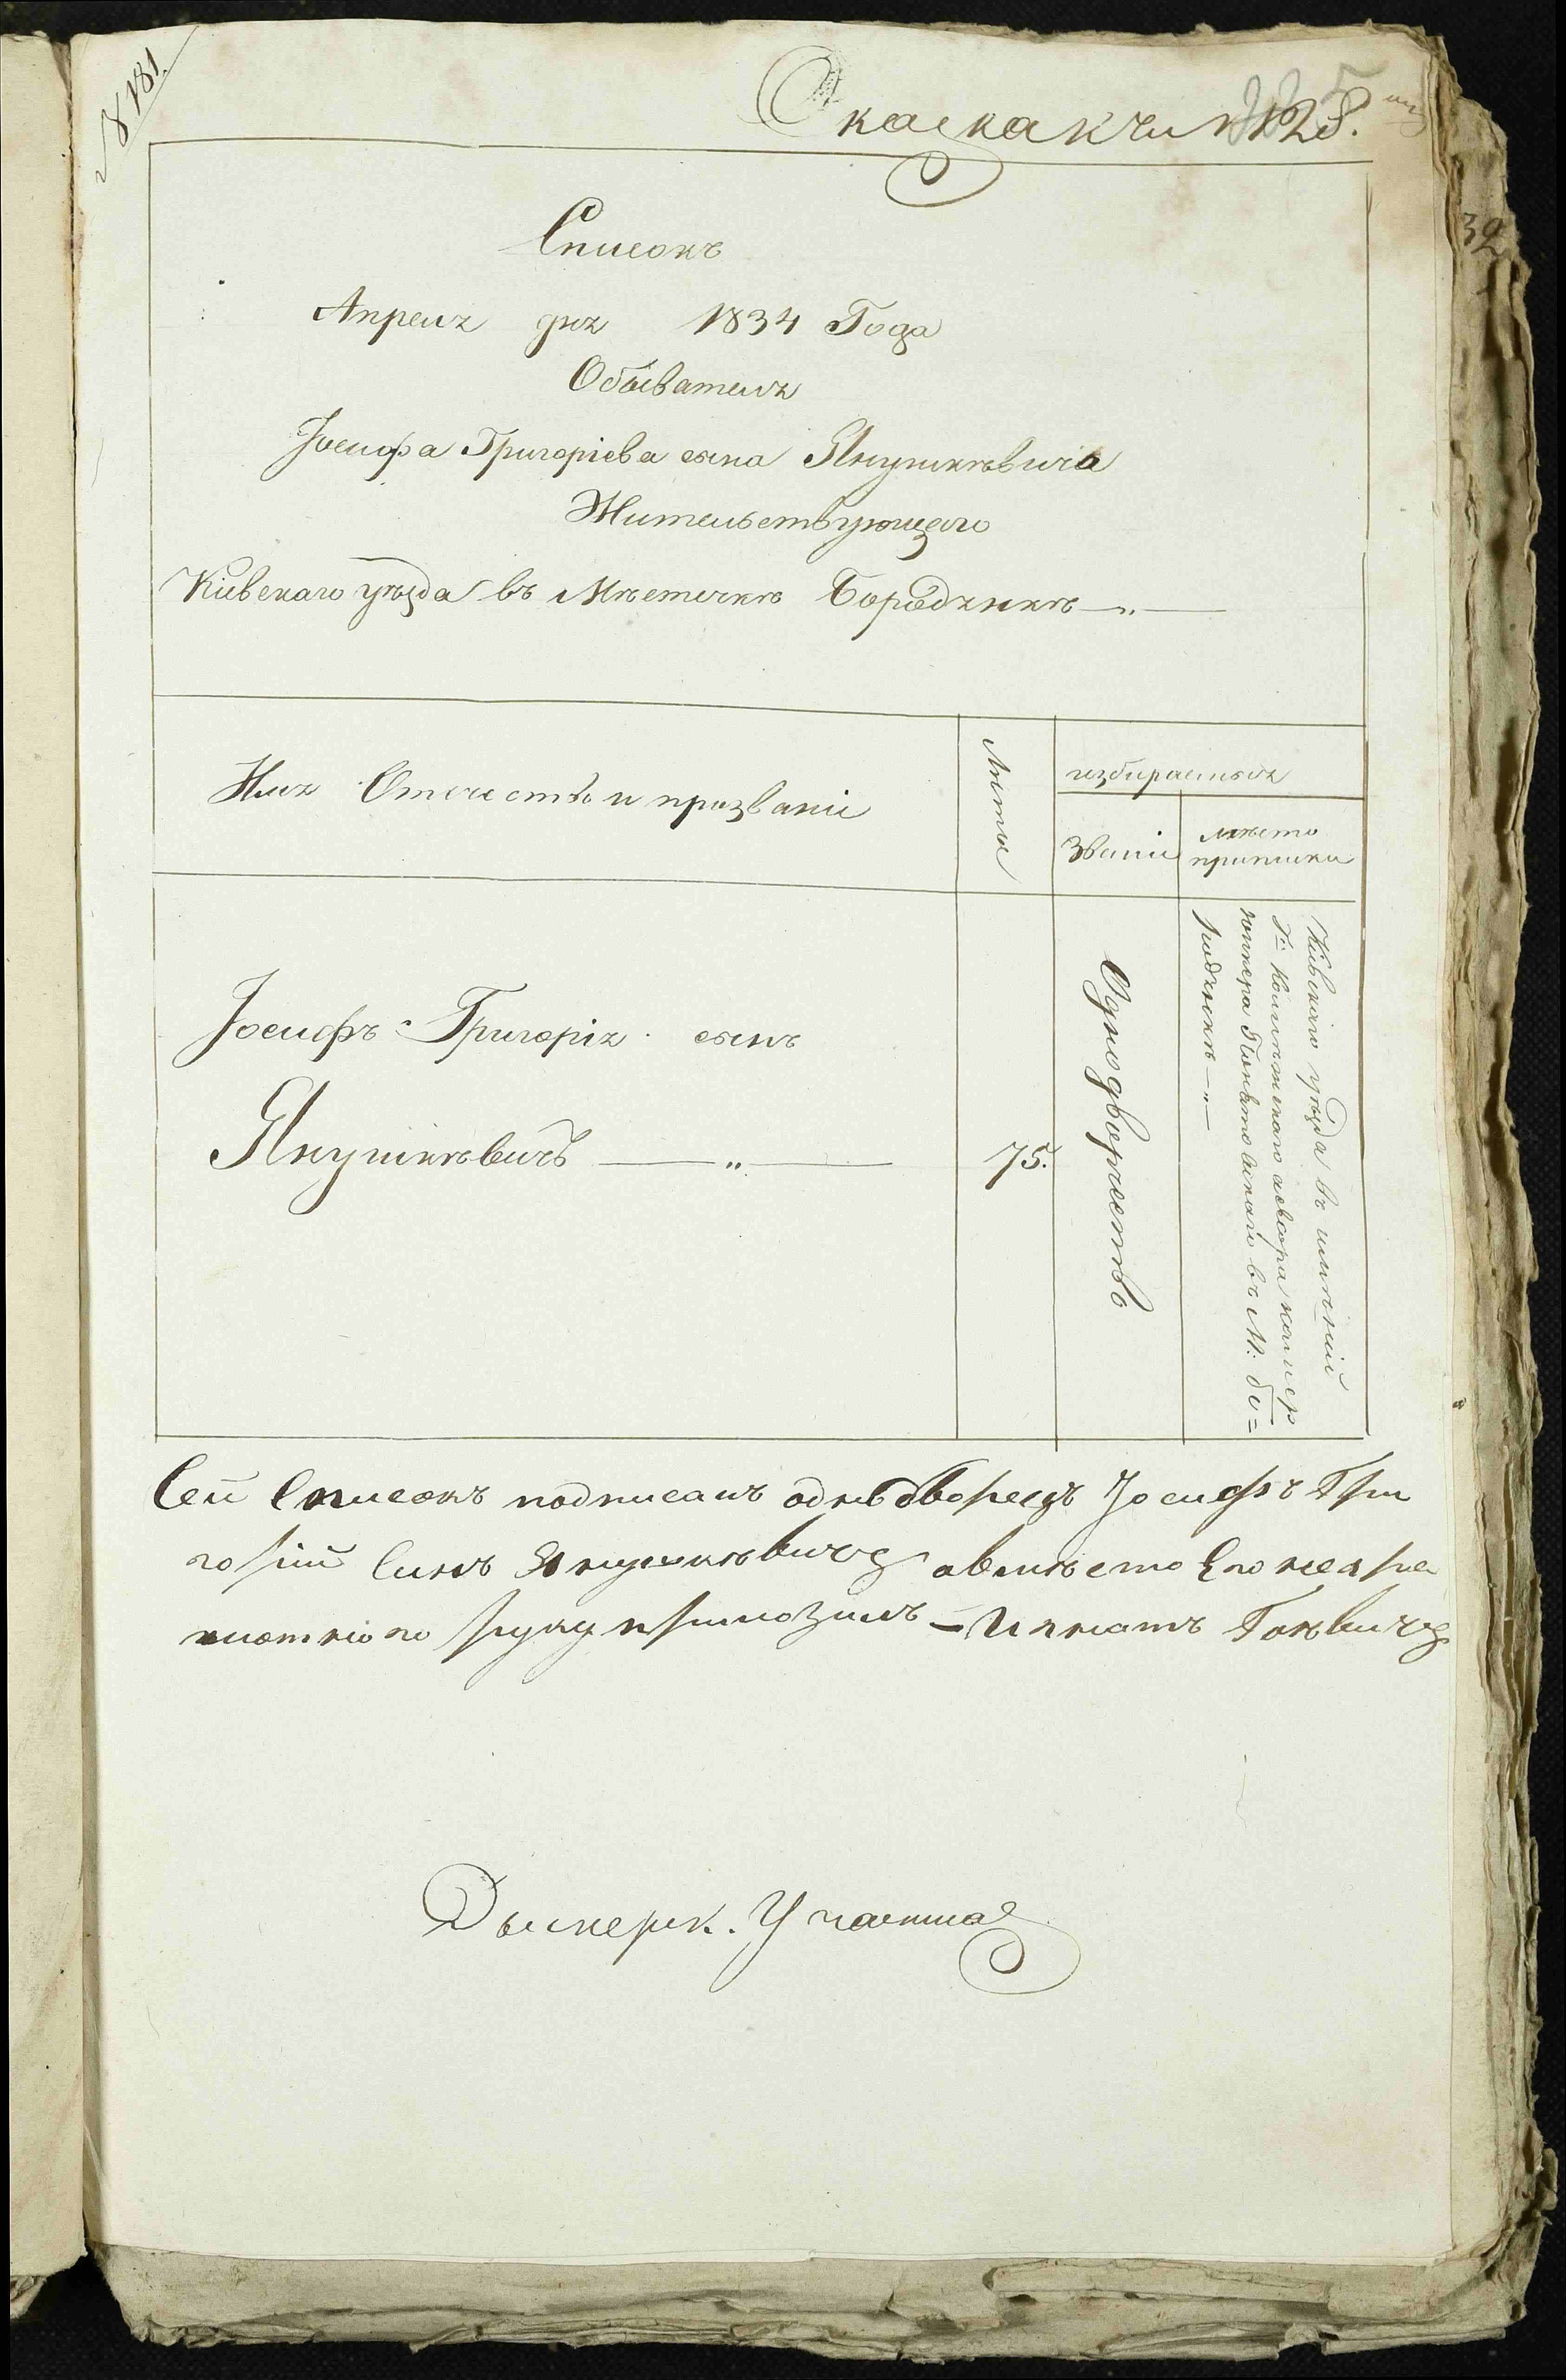 № 181.
Скаска къ № 128.
32
Списокъ
Апреля дня 1834 Года
Обывателя
Іосифа Григоріева сына Янушкѣвича
Жительствующаго
Кіевскаго уѣзда въ Мѣстечкѣ Бородянкѣ — „ —
Имя Отечество и празваніе
Лѣты
избираемыя
Званіе
мѣсто
приписки
Іосифъ Григорія сынъ
Янушкѣвичъ — „ —
75.
Однодворчество
Кіевскаго уѣзда въ имѣніи
Г: Колѣжскаго асесора камер
юнкера въ М. бо=
родянкѣ — „ —
Сей Списокъ подписанъ однодворецъ Іосифъ Гри
горій Синъ Янушкѣвичъ авмѣсто Его неагра
мотного руку приложилъ = Игнатъ
Дымерк. Участка